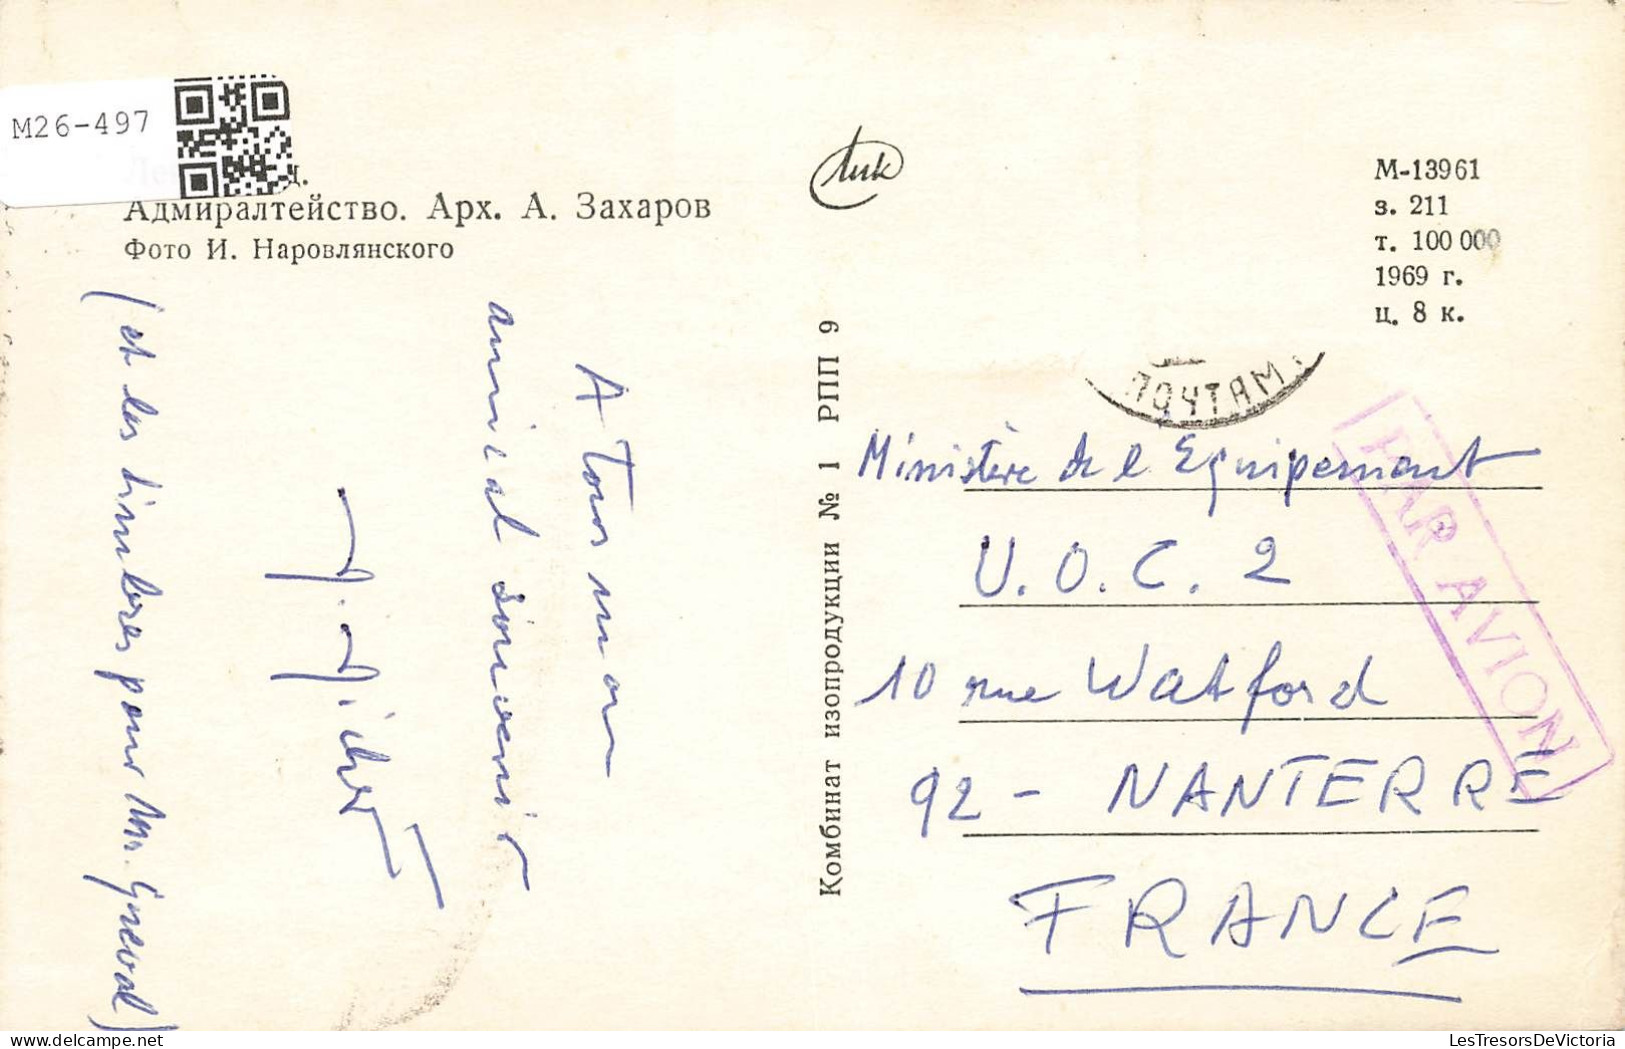 M26-497
Адмиралтейство. Арх. А. Захаров
Фото И. Наровлянского
Лик
М-13961
з. 211
т. 100 000
1969 г.
ц. 8 к.
A Tous mon
amical souvenir
(et les timbres pour Mr.
Комбинат изопродукции № 1 РПП 9
ПОЧТАМ
PAR AVION
Ministère de l'Equipement
U.O.C. 2
10 rue Watford
92 - NANTERRE
FRANCE
LesTresorsDeVictoria